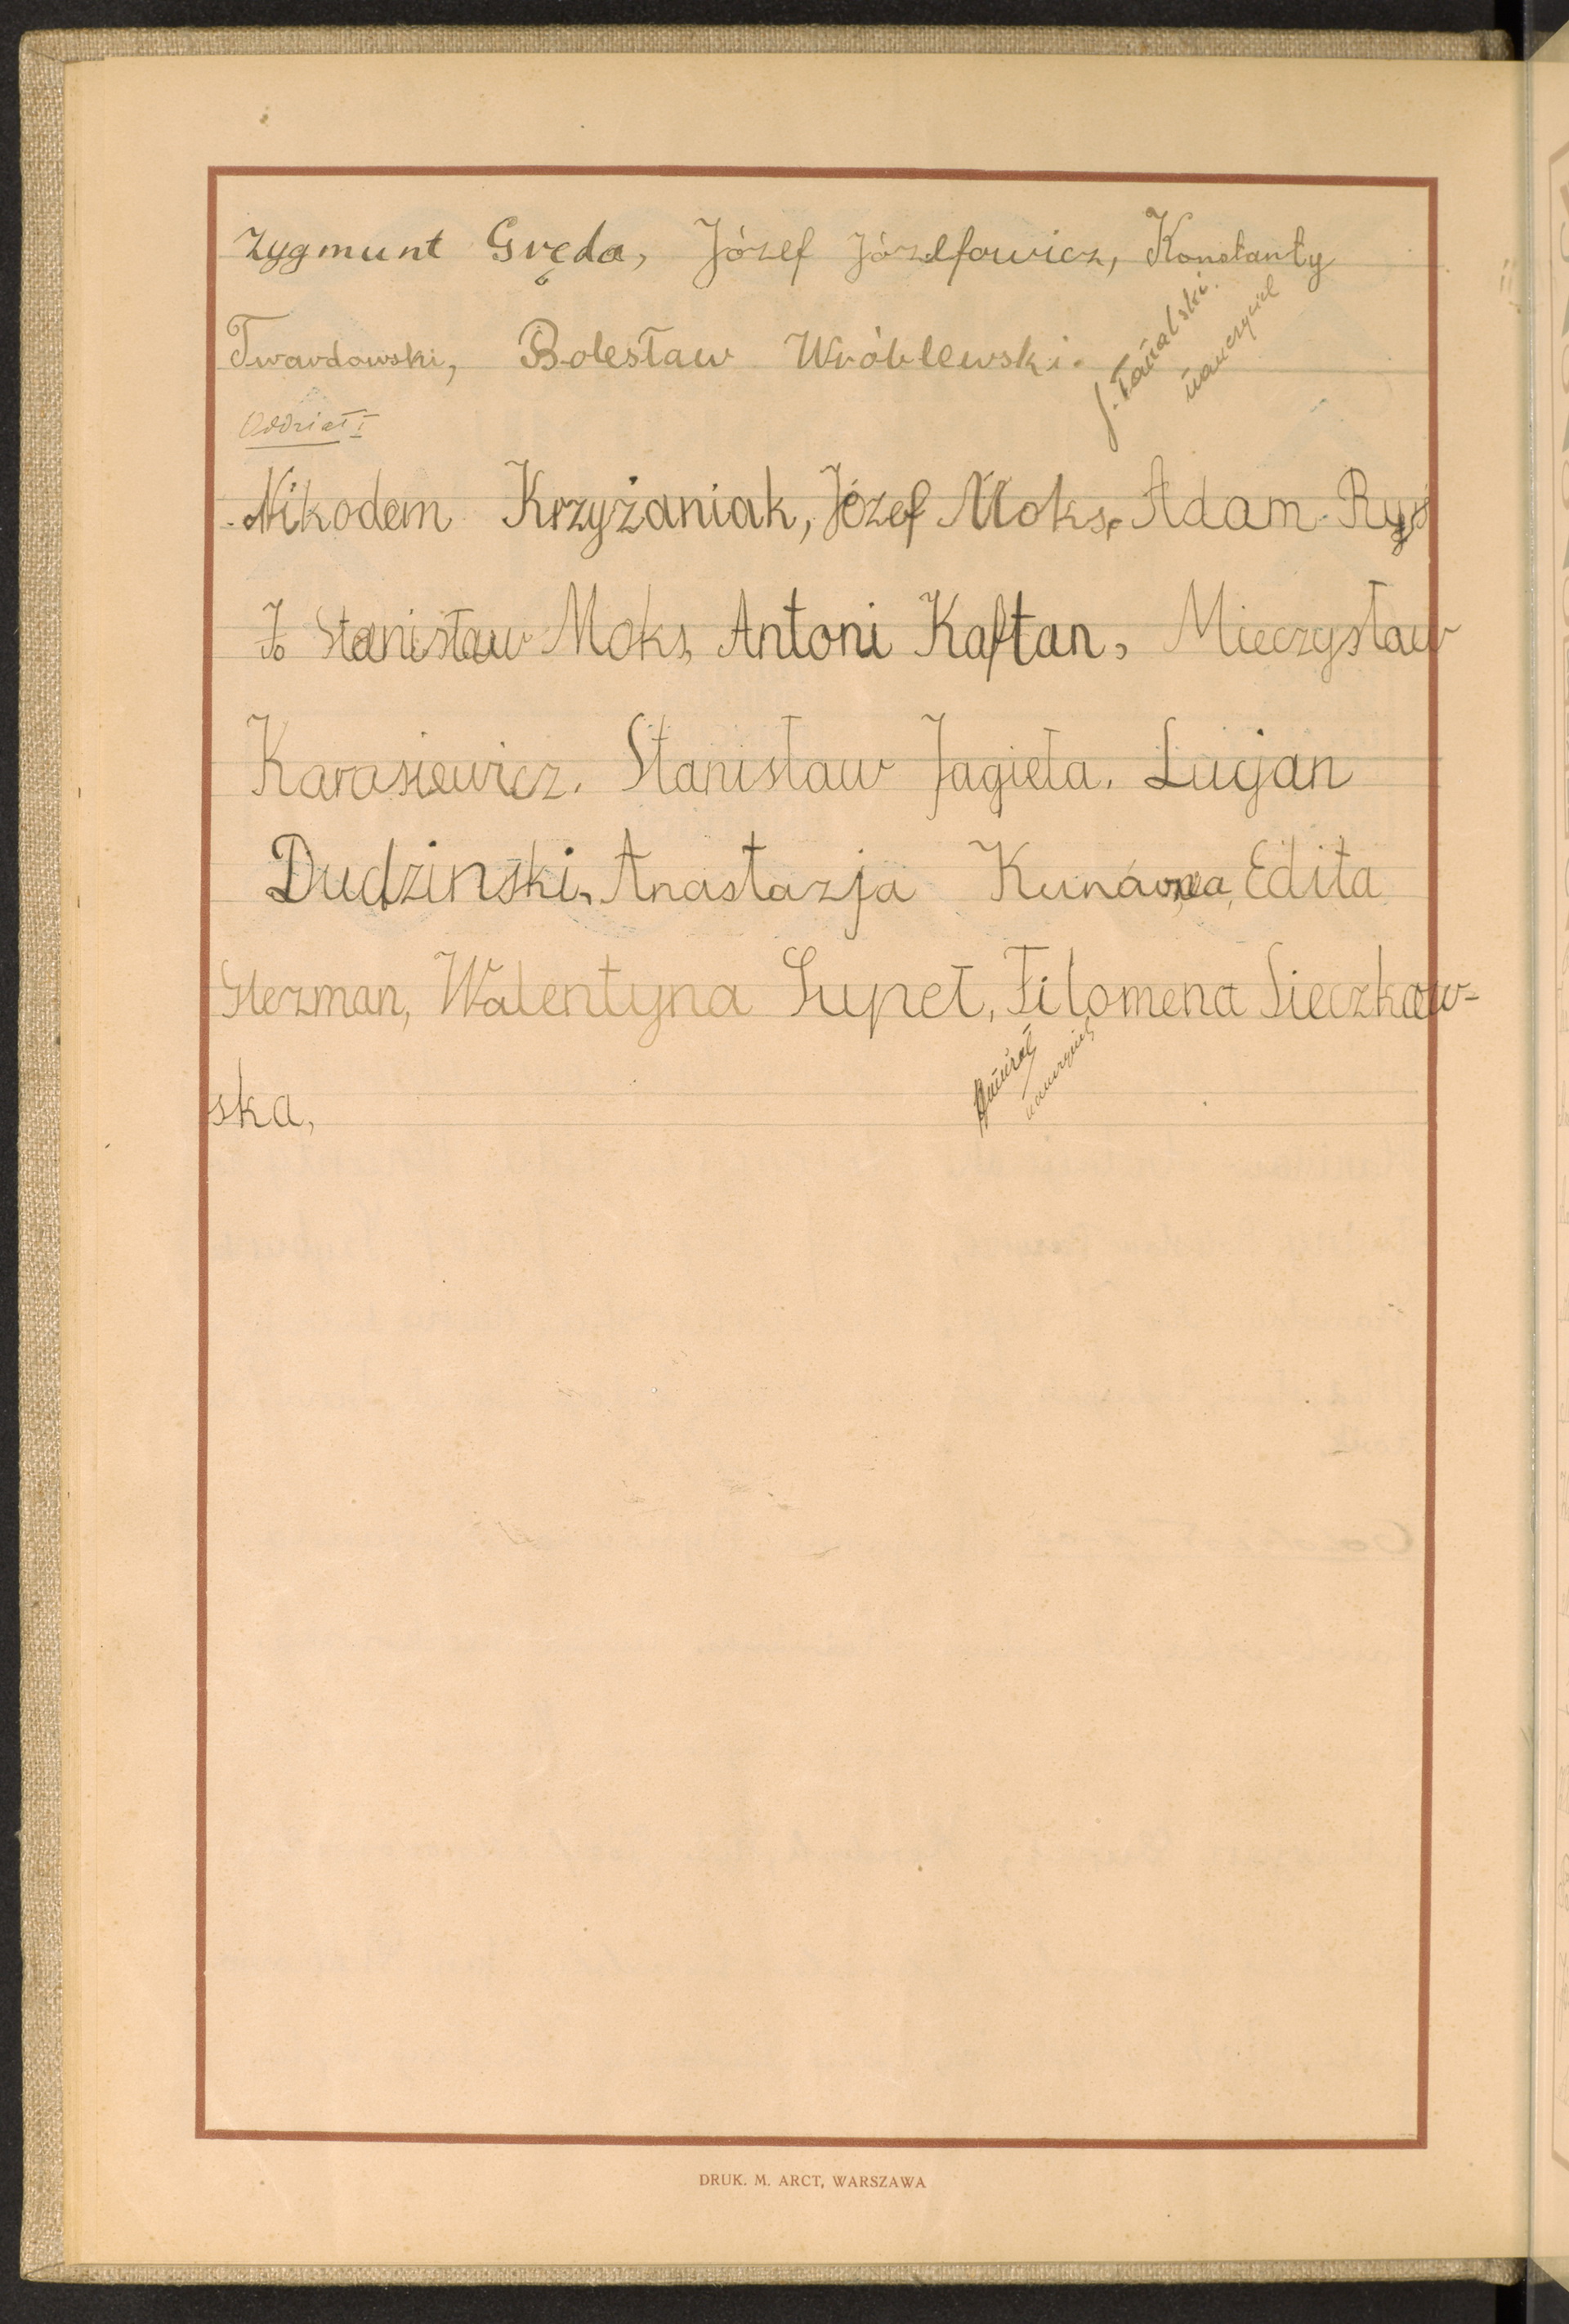 Zygmunt Gręda, Józef Józefowicz, Konstanty
Twardowski, Bolesław Wróblewski.
nauczyciel
Oddział I
Nikodem Krzyżaniak, Józef Moks, Adam Ryś
Stanisław Moks, Antoni Kaftan, Mieczysław
Karasiewicz. Stanisław Jagieła. Lucjan
Dudzinski, Anastazja Kunówna, Edita
Glezman, Walentyna Supeł, Filomena Sieczkow-
ska,
nauczyciel
DRUK. M. ARCT, WARSZAWA